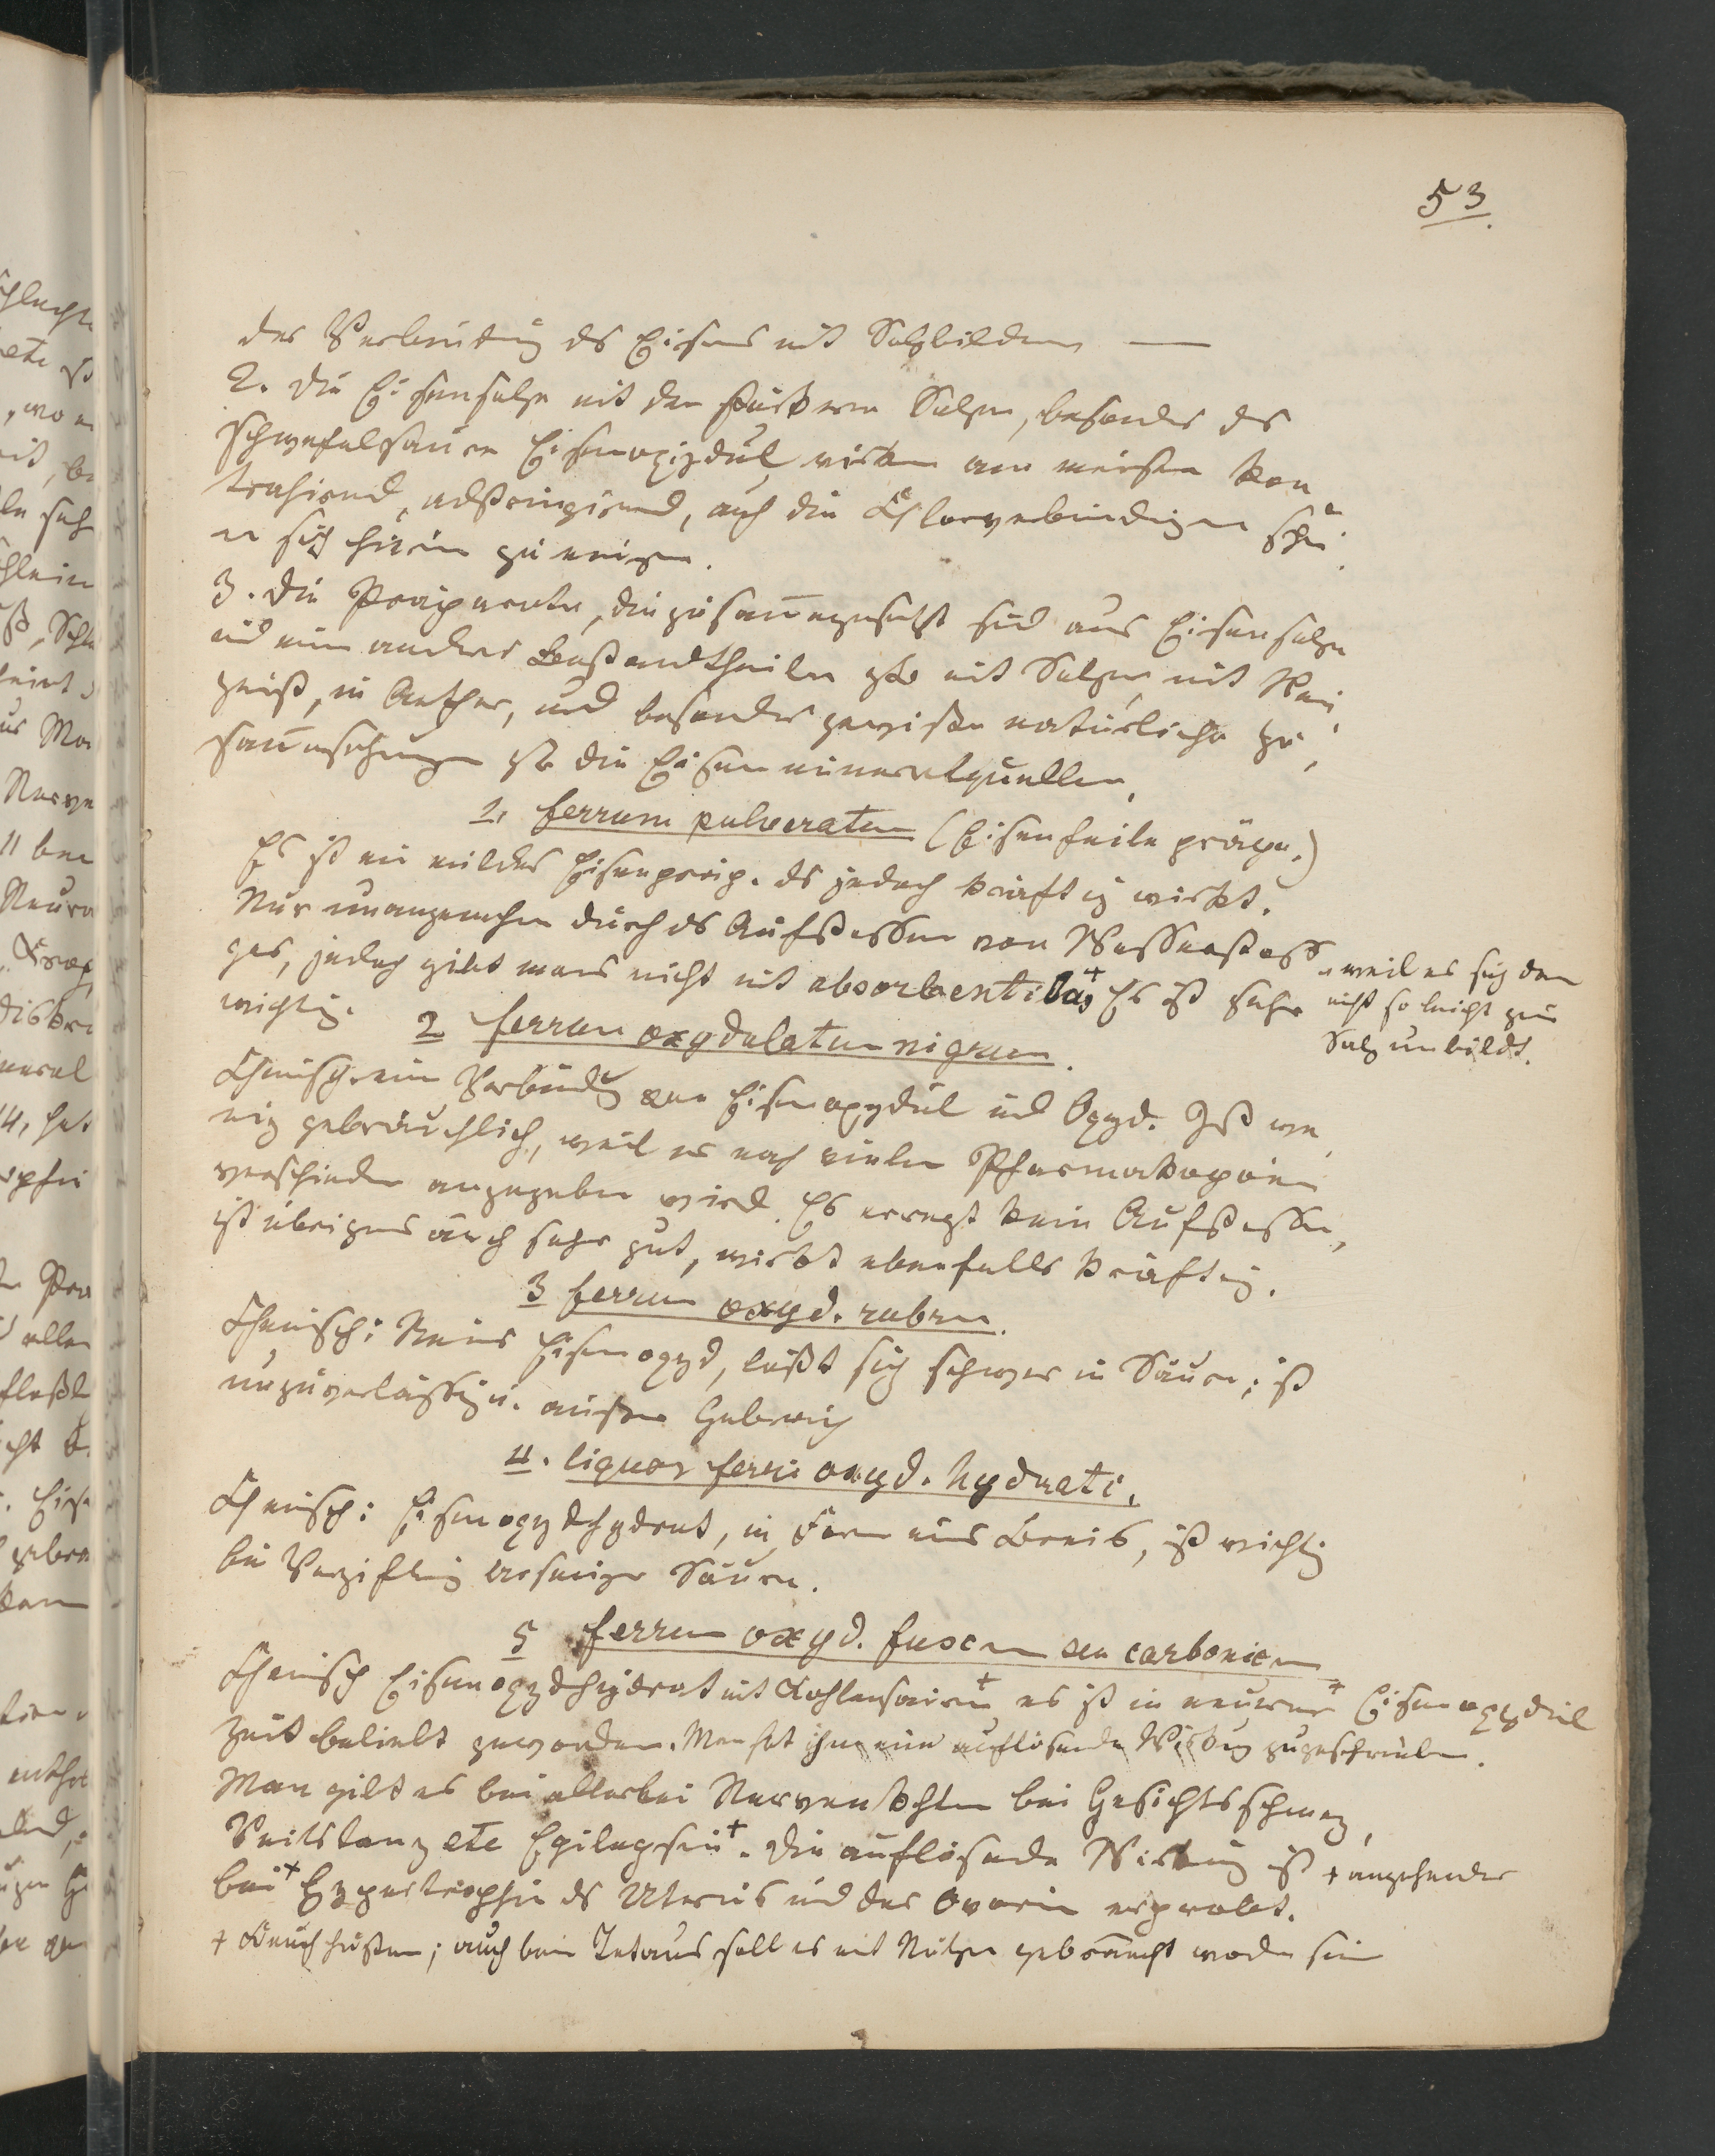 53.
der Verbindung ds Eisens mit Salzbildern —
2. Die Eisensalze mit den stärkern Salzen, besonders das
schwefelsaure Eisenoxÿdul wirken am meisten kon-
trahirend, adstringirend, auch die Chlorverbindungen schei-
nen sich hierin zu neigen.
3. Die Präparate, die zusam̅engesetzt sind aus Eisensalzen
und einen andern Bestandtheilen zB mit Salzen, mit Wein-
geist, in Aether, und besonders gewisse natürliche Zu-
sam̅ensetzungen zB die Eisenmineralquellen.
1. ferrum pulveratum (Eisenfeile präpa.)
Es ist ein mildes Eisenpräp. ds jedoch kräftig wirkt.
Nur unangenehm durch ds Aufstossen von Wasserstoff-
gas, jedoch gibt mans nicht mit absorbentibus + Es ist sehr
+ weil es sich dan
nicht so leicht zum
Salz umbildt.
wichtig.
2 ferrum oxydulatum nigrum.
Chemisch: eine Verbindg von Eisenoxydul und Oxyd. Ist we-
nig gebräuchlich, weil es nach vielen Pharmakopöen
verschieden angegeben wird. Es erregt kein Aufstossen,
ist übrigens auch sehr gut, wirkt ebenfalls kräftig.
3 ferrum oxyd. rubrum.
Chemisch: Reines Eisenoxyd, läßt sich schwer in Säuren; ist
unzuverlässig u. außer Gebrauch
4. liquor ferri oxyd. hydrati.
Chemisch: Eisenoxydhydrat, in Form eines Breies, ist wichtig
bei Vergiftung arseniger Säuren.
5 ferrum oxyd. fuscum seu carbonicum
Chemisch Eisenoxydhydrat mit Kohlensäure + es ist in neuerer + Eisenoxydul
Zeit beliebt geworden. Man hat ihm eine auflösende Wirkung zugeschrieben.
Man gibt es bei allerlei Nervenkhten bei Gesichtsschmerz,
Veitstanz etc Epilepsie +. Die auflösende Wirkung ist + angehender
bei + Hypertrophie ds Uterus und der Ovarien erprobt.
+ Keuchhusten; auch beim Tetanus soll es mit Nutzen gebraucht worden sein